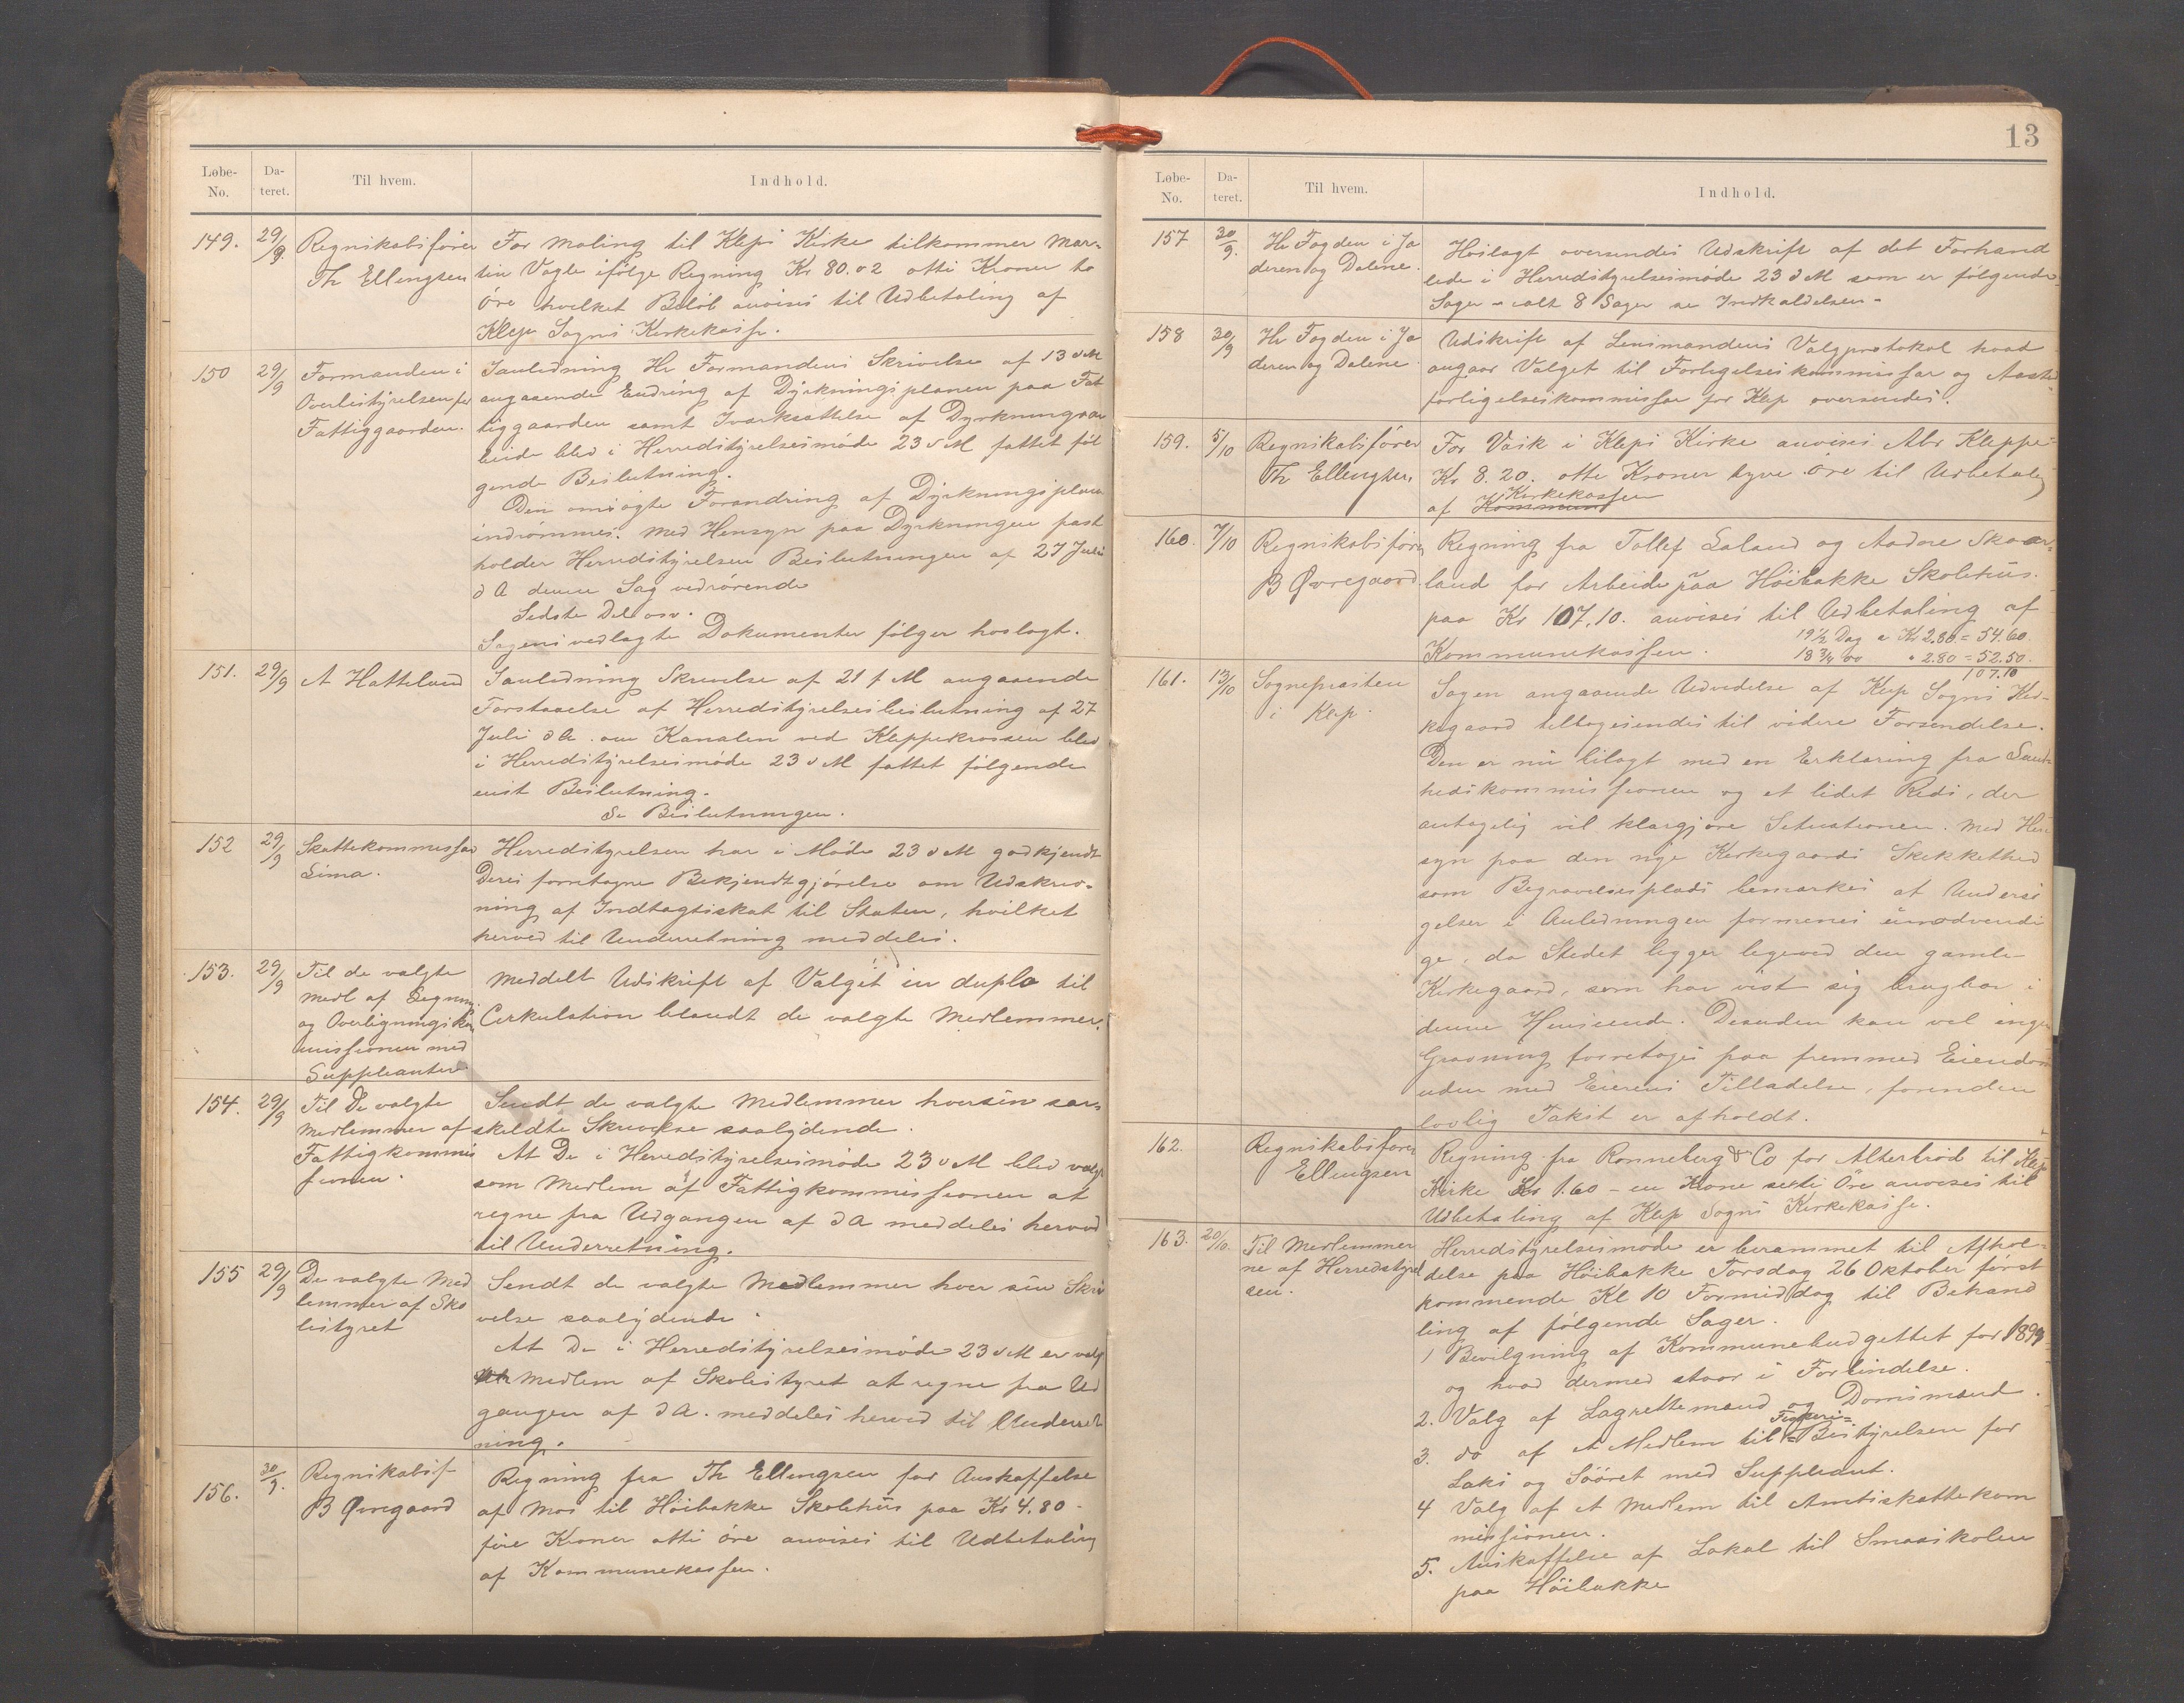 Løbe-
No.
Da-
teret.
Til hvem.
Indhold.
149.
29/9.
Regnskabsfører
Th Ellengsen
For Maling til Kleps Kirke tilkommer Mar-
tin Vagle ifølge Regning Kr 80.02 otti Kroner to
Øre hvilket Beløb anvises til Udbetaling af
Klep Sogns Kirkekasse.
150
29/9
Formanden i
Overbestyrelsen for
Fattiggaarden.
I anledning Hr Formandens Skrivelse af 13 d M
angaaende Endring af Dyrkningsplanen paa Fat
tiggaarden samt Iverksættelse af Dyrkningsar
beide blev i Herredstyrelsesmøde 23 d M fattet føl
gende Beslutning.
Den omsøgte Forandring af Dyrkningsplan
indrømmes. Med Hensyn paa Dyrkningen fast
holder Herredstyrelsen Beslutningen af 27 Juli
d A denne Sag vedrørende
Sidste Del osv.
Sagens vedlagte Dokumenter følger hoslagt.
151.
29/9
A Hatteland
I anledning Skrivelse af 21 f M angaaende
Forstaaelse af Herredstyrelsesbeslutning af 27
Juli d A. om Kanalen ved Kleppekrossen blev
i Herredstyrelsesmøde 23 d M fattet følgende
enst Beslutning.
Se Beslutningen.
152
29/9
Skattekommissær
Lima.
Herredstyrelsen har i Møde 23 d M godkjendt
Deres foretagne Bekjendtgjørelse om Udskriv-
ning af Indtægtsskat til Staten, hvilket
herved til Underretning meddeles.
153.
29/9
Til de valgte
Medl af Ligning
og Overligningskom
missionen med
Suppleanter
Meddelt Udskrift af Valget in duplo til
Cirkulation blandt de valgte Medlemmer.
154.
29/9
Til De valgte
Medlemmer af
Fattigkommis
sionen.
Sendt de valgte Medlemmer hver sin sær-
skildte Skrivelse saalydende.
At De i Herredstyrelsesmøde 23 d M blev valgt
som Medlem af Fattigkommissionen at
regne fra Udgangen af d A meddeles herved
til Underretning.
155
29/9
De valgte Med
lemmer af Sko
lestyret
Sendt de valgte Medlemmer hver sin Skri
velse saalydende.
At De i Herredstyrelsesmøde 23 d M er valg
Medlem af Skolestyret at regne fra Ud
gangen af d A. meddeles herved til Underret
ning.
156.
30/9.
Regnskabsf
B Øvregaard
Regning fra Th Ellengsen for Anskaffelse
af Mos til Høibakke Skolehus paa Kr 4.80 -
fire Kroner otti Øre anvises til Udbetaling
af Kommunekassen.
13
Løbe-
No.
Da-
teret.
Til hvem.
Indhold.
157
30/9.
Hr Fogden i Jæ
deren og Dalene.
Hoslagt oversendes Udskrift af det Forhand
lede i Herredstyrelsesmøde 23 d M som er følgende
Sager - ialt 8 Sager se Indkaldelsen -
158
30/9
Hr Fogden i Jæ
deren og Dalene.
Udskrift af Lensmandens Valgprotokol hvad
angaar Valget til Forligelseskommissær og Aasted
forligelseskommissær for Klep oversendes.
159.
5/10
Regnskabsfører
Th Ellengsen.
For Vask i Kleps Kirke anvises Abr Kleppe
Kr 8.20. otte Kroner tyve Øre til Udbetaling
Kirkekassen
af Kommune
160.
7/10
Regnskabsfører
B Øvregaard.
Regning fra Tollef Laland og Aadne Skaar-
land for Arbeide paa Høibakke Skolehus.
paa Kr 107.10. anvises til Udbetaling af
Kommunekassen.
19 1/2 Dag a Kr 2.80 = 54.60.
18 3/4 do " 2.80 = 52.50.
107.10
161.
13/10
Sognepræsten
i Klep.
Sagen angaaende Udvidelse af Klep Sogns Kir-
kegaard tilbagesendes til videre Forsendelse.
Den er nu bilagt med en Erklæring fra Sund-
hedskommissionen og et lidet Rids, der
antagelig vil klargjøre Situationen. Med Hen
syn paa den nye Kirkegaards Skikkethed
som Begravelsesplads bemærkes at Undersø
gelser i Anledningen formenes unødvendi
ge, da Stedet ligger ligeved den gamle
Kirkegaard, som har vist sig brugbar i
denne Henseende. Desuden kan vel ingen
Gravning foretages paa fremmed Eiendom
uden med Eierens Tilladelse, forenden
lovlig Takst er afholdt.
162.
Regnskabsfører
Ellengsen
Regning fra Ronneberg & Co for Alterbrød til Klep
Kirke Kr 1.60 - en Krone seksti Øre anvises til
Udbetaling af Klep Sogns Kirkekasse.
163.
20/10.
Til Medlemmer
ne af Herredstyrel
sen.
Herredstyrelsesmøde er berammet til Afhol-
delse paa Høibakke Torsdag 26 Oktober først
kommende Kl 10 Formiddag til Behand
ling af følgende Sager.
1 Bevilgning af Kommunebudgettet for 1899
og hvad dermed staar i Forbindelse.
2. Valg af Lagrettemænd og Domsmænd.
Fiskeri=
3. do af et Medlem til Bestyrelsen for
Laks og Søøret med Suppleant.
4 Valg af et Medlem til Amtsskattekom
missionen.
5. Anskaffelse af Lokal til Smaaskolen
paa Høibakke